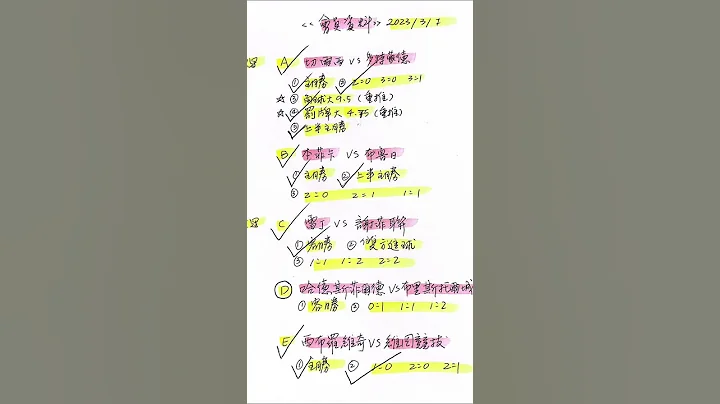 <<會員資料>> 2023/3/7
A 切爾西 VS 多特蒙德
① 主勝 ② 2=0 3=0 3=1
☆ ③ 角球大9.5 (重推)
☆ ④ 罰牌大4.75 (重推)
⑤ 上半主勝
B 本菲卡 VS 布魯日
① 主勝 ② 上半主勝
③ 2=0 2=1 1=1
C 雷丁 VS 謝菲聯
① 客勝 ② 雙方進球
③ 1=1 1=2 2=2
D 哈德斯菲爾德 VS 布里斯托爾城
① 客勝 ② 0=1 1=1 1=2
E 西布羅維奇 VS 維冈競技
① 主勝 ② 1=0 2=0 2=1